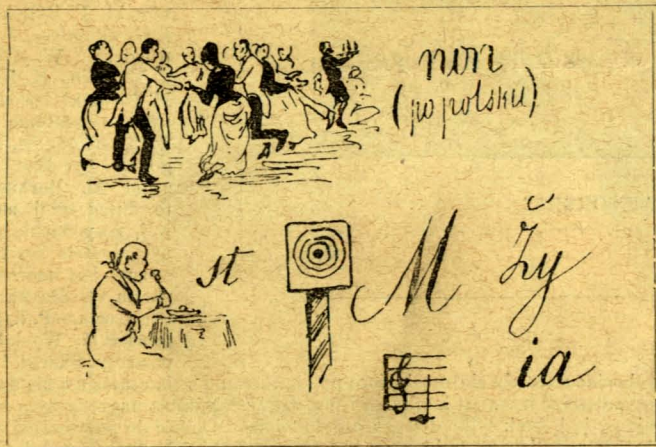 non
(po polsku)
st M Žy
ia